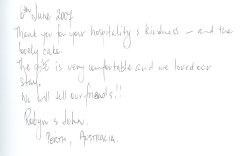 6th June 2007
Thank you for your hospitality & kindness – and the
lovely cake.
The is very comfortable and we loved our
stay.
We will tell our friends!!
Robyn & John.
PERTH, AUSTRALIA.